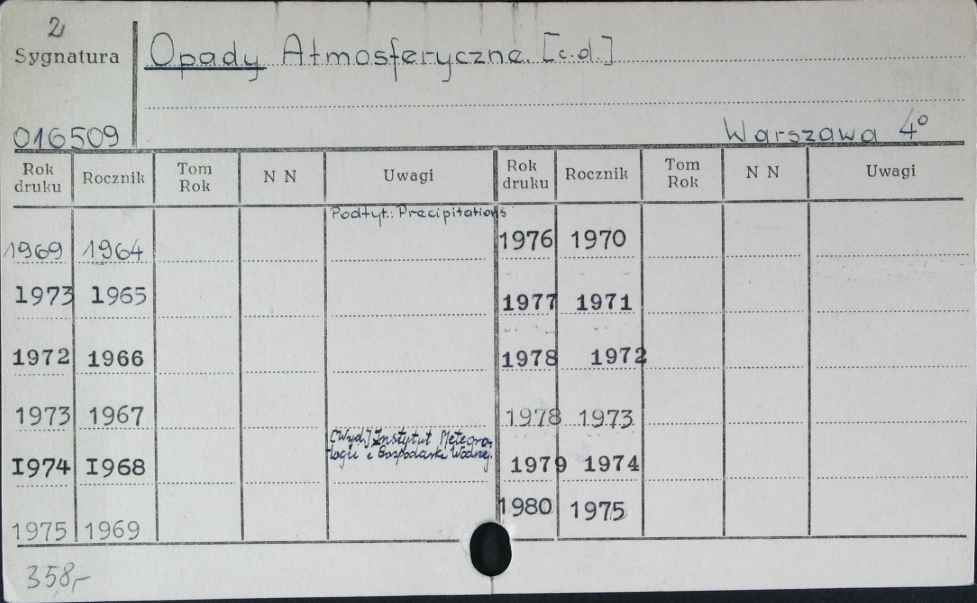 2
Sygnatura
Opady Atmosferyczne. [c.d.]
016509
Warszawa 4°
Rok druku Rocznik Tom Rok N N Uwagi Rok druku Rocznik Tom Rok N N Uwagi
Podtyt.: Precipitations
1969 1964 1976 1970
1973 1965 1977 1971
1972 1966 1978 1972
1973 1967 1978 1973
[Wyd.] Instytut Meteoro-
logii i Gospodarki Wodnej.
1974 1968 1979 1974
1975 1969 1980 1975
358,-